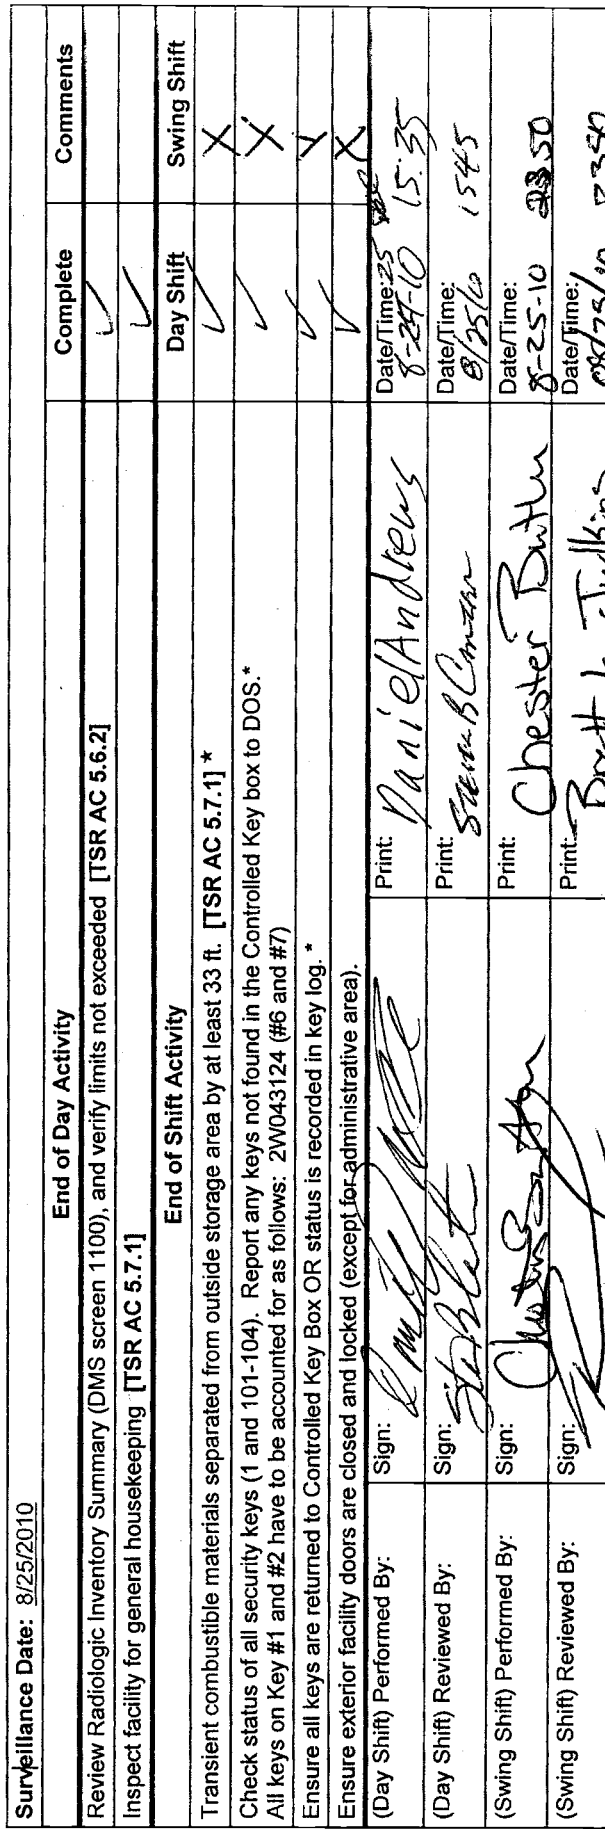 Surveillance Date: 8/25/2010
End of Day Activity Complete Comments
Review Radiologic Inventory Summary (DMS screen 1100), and verify limits not exceeded [TSR AC 5.6.2] ✓
Inspect facility for general housekeeping [TSR AC 5.7.1] ✓
End of Shift Activity Day Shift Swing Shift
Transient combustible materials separated from outside storage area by at least 33 ft. [TSR AC 5.7.1] * ✓ X
Check status of all security keys (1 and 101-104). Report any keys not found in the Controlled Key box to DOS.* ✓ X
All keys on Key #1 and #2 have to be accounted for as follows: 2W043124 (#6 and #7)
Ensure all keys are returned to Controlled Key Box OR status is recorded in key log. * ✓ X
Ensure exterior facility doors are closed and locked (except for administrative area). ✓ X
(Day Shift) Performed By: Sign: Print: Daniel Andrews Date/Time: 25 8-24-10 15:35
(Day Shift) Reviewed By: Sign: Print: Date/Time: 8/25/10 1545
(Swing Shift) Performed By: Sign: Print: Chester Butler Date/Time: 8-25-10 2350
(Swing Shift) Reviewed By: Sign: Print: Brett L. Judkins Date/Time: